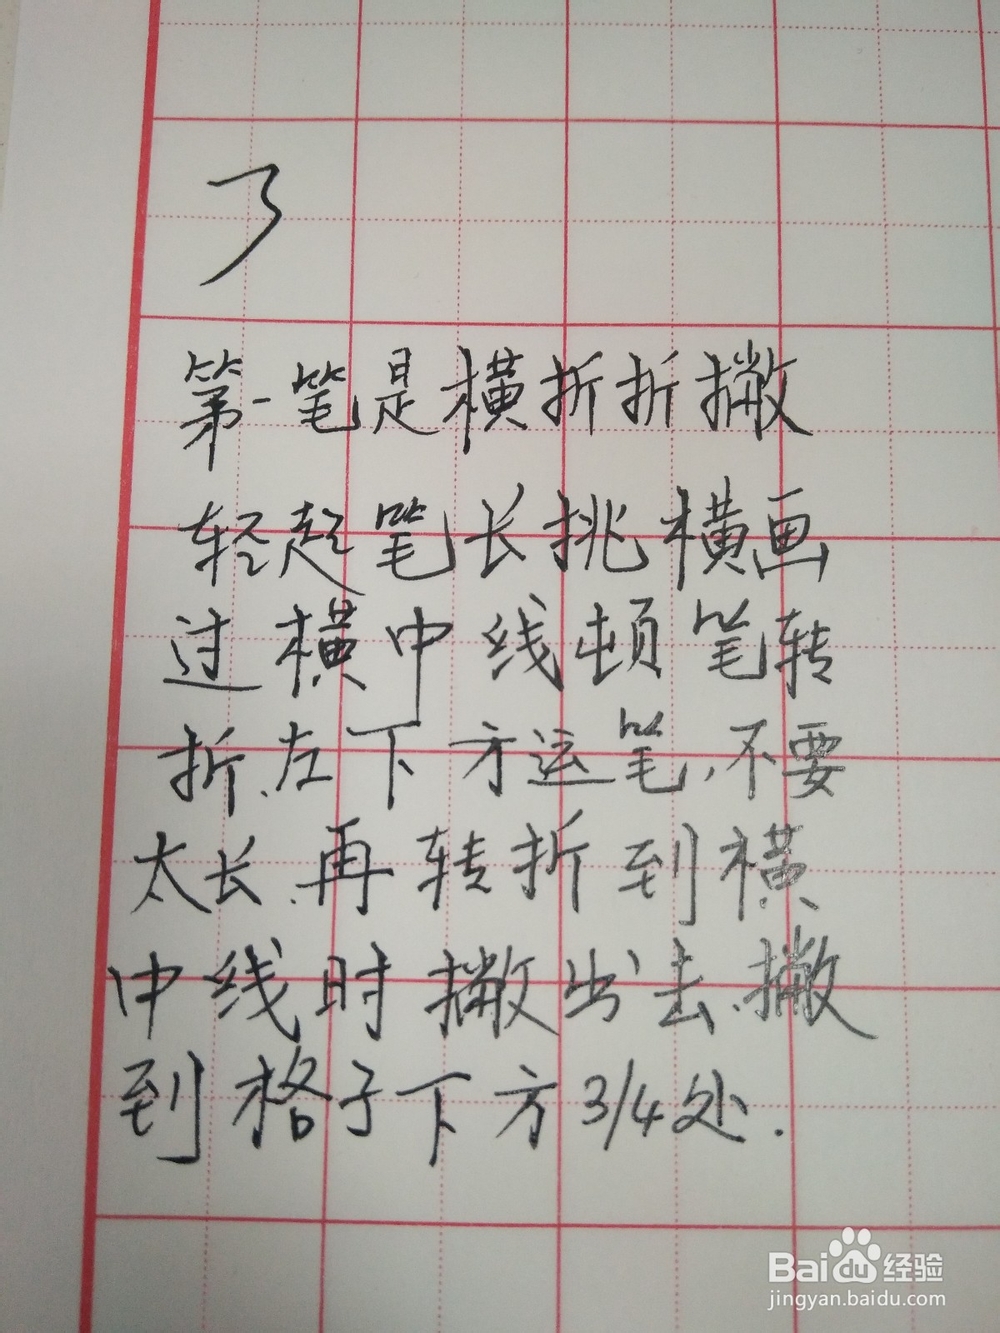 第一笔是横折折撇
轻起笔长挑横画
过横中线顿笔转
折.左下方运笔,不要
太长.再转折到横
中线时撇出去.撇
到格子下方3/4处.
Baidu经验
jingyan.baidu.com